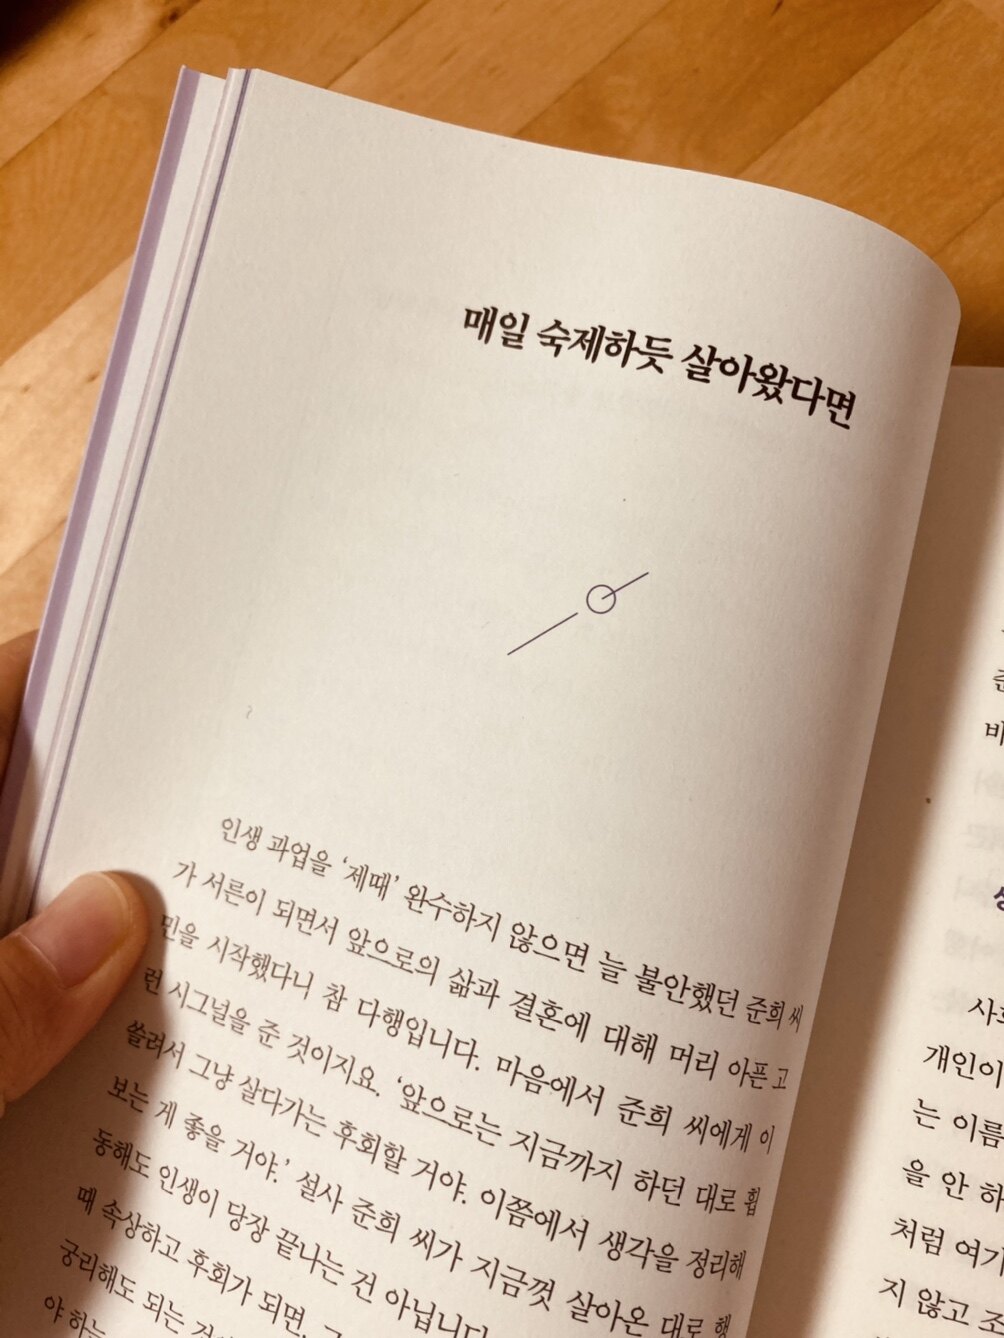 매일 숙제하듯 살아왔다면
인생 과업을 ‘제때’ 완수하지 않으면 늘 불안했던 준희 씨
가 서른이 되면서 앞으로의 삶과 결혼에 대해 머리 아픈 고
민을 시작했다니 참 다행입니다. 마음에서 준희 씨에게 이
런 시그널을 준 것이지요. ‘앞으로는 지금까지 하던 대로 휩
쓸려서 그냥 살다가는 후회할 거야. 이쯤에서 생각을 정리해
보는 게 좋을 거야.’ 설사 준희 씨가 지금껏 살아온 대로 행
동해도 인생이 당장 끝나는 건 아닙니다
때 속상하고 후회가 되면,
궁리해도 되는
야 하는
비
사회
개인이
는 이름
을 안 하
처럼 여기
지 않고 조